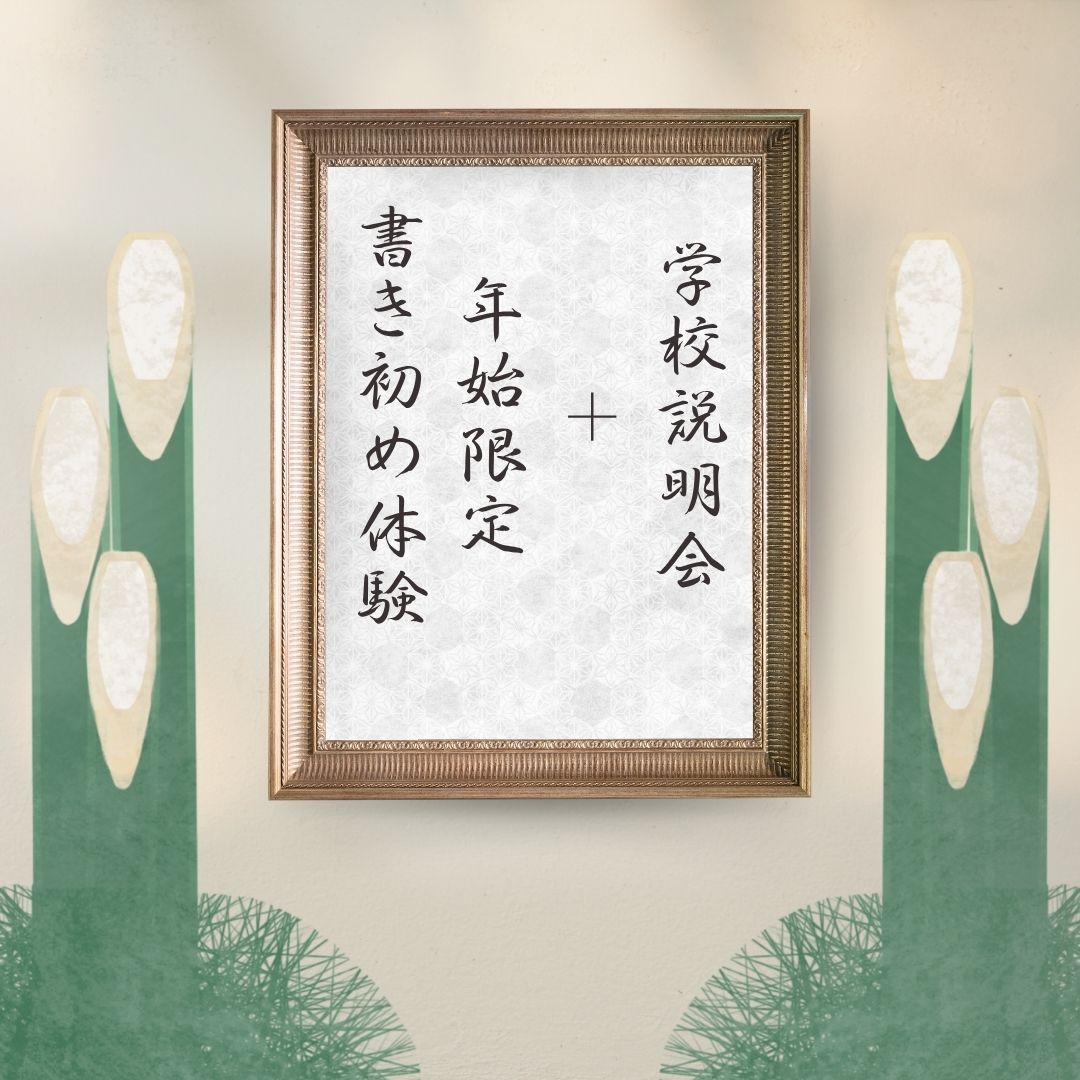 学校説明会
＋
年始限定
書き初め体験